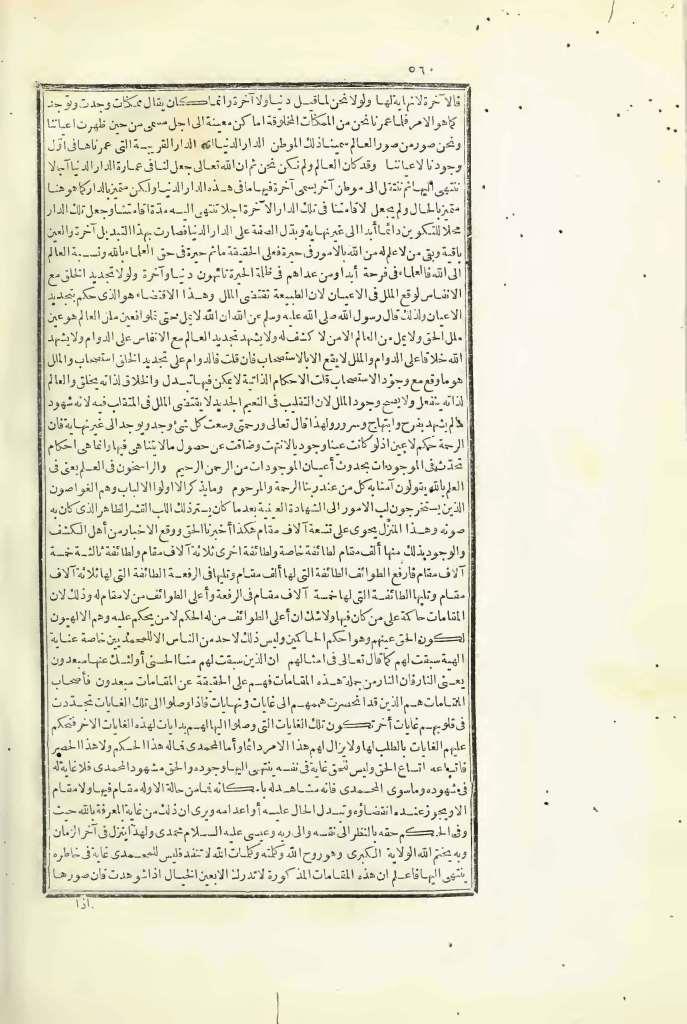 ٥٦٠
فالآخرة لانهاية لها ولولا نحن لما قيل دنيا ولا آخرة وانما كان يقال ممكنات وجدت وتوجد
كما هو الامر فلما عمرنا نحن من الممكنات المخلوقة اماكن معينة الى اجل مسمى من حين ظهرت اعياننا
ونحن صور من صور العالم سمينا ذلك الموطن الدار الدنيا اى الدار القريبة التى عمرناها فى اوّل
وجودنا لاعياننا وقد كان العالم ولم نكن نحن ثم ان الله تعالى جعل لنا فى عمارة الدار الدنيا آجالا
ننتهى اليها ثم ننتقل الى موطن آخر يسمى آخرة فيها ما فى هذه الدار الدنيا ولكن متميز بالدار كما هو هنا
متميز بالحال ولم يجعل لاقامتنا فى تلك الدار الآخرة اجلا تنتهى اليه مدّة اقامتنا وجعل تلك الدار
محلا للتكوين دائما أبدا الى غير نهاية وبدّل الصفة على الدار الدنيا فصارت بهذا التبديل آخرة والعين
باقية وبقى من لا علم له من الله بالامور فى حيرة فعلى الحقيقة ما ثم حيرة فى حق العلماء بالله ونسبة العالم
الى الله فالعلماء فى فرحة أبدا ومن عداهم فى ظلمة الحيرة تائهون دنيا وآخرة ولولا تجديد الخلق مع
الانفاس لوقع الملل فى الاعيان لان الطبيعة تقتضى الملل وهذا الاقتضاء هو الذى حكم بتجديد
الاعيان ولذلك قال رسول الله صلى الله عليه وسلم عن الله ان الله لا يمل حتى تملوا فعين ملل العالم هو عين
ملل الحق ولا يمل من العالم الامن لا كشف له ولا يشهد تجديد العالم مع الانفاس على الدوام ولا يشهد
الله خلاقا على الدوام والملل لا يقع الا بالاستصحاب فان قلت فالدوام على تجديد الخلق استصحاب والملل
هو ما وقع مع وجود الاستصحاب قلت الاحكام الذاتية لا يمكن فيها تبدل والخلاق لذاته يخلق والعالم
لذاته ينفعل ولا يصح وجود الملل لان التقليب فى النعيم الجديد لا يقتضى الملل فى المتقلب فيه لانه شهود
ما لم يشهد بفرح وابتهاج وسرور ولهذا قال تعالى ورحمتى وسعت كل شئ وجد ويوجد الى غير نهاية فان
الرحمة حكم لا عين اذ لو كانت عينا وجوديا لانتهت وضاقت عن حصول ما لا يتناهى فيها وانما هى احكام
تحدث فى الموجودات بحدوث أعيان الموجودات من الرحمن الرحيم والراسخون فى العلم يعنى فى
العلم بالله يقولون آمنا به كل من عند ربنا الرحمة والمرحوم وما يذكر الا اولوا الالباب وهم الغواصون
الذين يستخرجون لب الامور الى الشهادة العينية بعد ما كان يستر ذلك اللب القشر الظاهر الذى كان به
صونه وهذا المنزل يحوى على تسعة آلاف مقام هكذا أخبرنا الحق ووقع الاخبار من أهل الكشف
والوجود بذلك منها ألف مقام لطائفة خاصة ولطائفة اخرى ثلاثة آلاف مقام ولطائفة ثالثة خمسة
آلاف مقام فارفع الطوائف الطائفة التى لها ألف مقام وتليها فى الرفعة الطائفة التى لها ثلاثة آلاف
مقام وتليها الطائفة التى لها خمسة آلاف مقام فى الرفعة وأعلى الطوائف من لا مقام له وذلك لان
المقامات حاكمة على من كان فيها ولا شك ان أعلى الطوائف من له الحكم لا من يحكم عليه وهم الالهيون
لكون الحق عينهم وهو أحكم الحاكمين وليس ذلك لاحد من الناس الا للمحمديين خاصة عناية
الهية سبقت لهم كما قال تعالى فى امثالهم ان الذين سبقت لهم منا الحسنى أولئك عنها مبعدون
يعنى النار فان النار من جملة هذه المقامات فهم على الحقيقة عن المقامات مبعدون فأصحاب
المقامات هم الذين قد انحصرت هممهم الى غايات ونهايات فاذا وصلوا الى تلك الغايات تجددت
فى قلوبهم غايات أخر تكون تلك الغايات التى وصلوا اليها لهم بدايات لهذه الغايات الاخر فتحكم
عليهم الغايات بالطلب لها ولا يزال لهم هذا الامر دائما وأما المحمدى فما له هذا الحكم ولا هذا الحصر
فاتساعه اتساع الحق وليس للحق غاية فى نفسه ينتهى اليها وجوده والحق مشهود المحمدى فلا غاية له
فى شهوده وما سوى المحمدى فانه مشاهد لامكانه فما من حالة الا وله مقام فيها ولا مقام
الا ويجوز عنده انقضاؤه وتبدل الحال عليه أو اعدامه ويرى ان ذلك من غاية المعرفة بالله حيث
وفى الحكم حقه بالنظر الى نفسه والى ربه وعيسى عليه السلام محمدى ولهذا ينزل فى آخر الزمان
وبه يختم الله الولاية الكبرى وهو روح الله وكلمته وكلمات الله لا تنفد فليس للمحمدى غاية فى خاطره
ينتهى اليها فاعلم ان هذه المقامات المذكورة لا تدرك الا بعين الخيال اذا شوهدت فان صورها
اذا